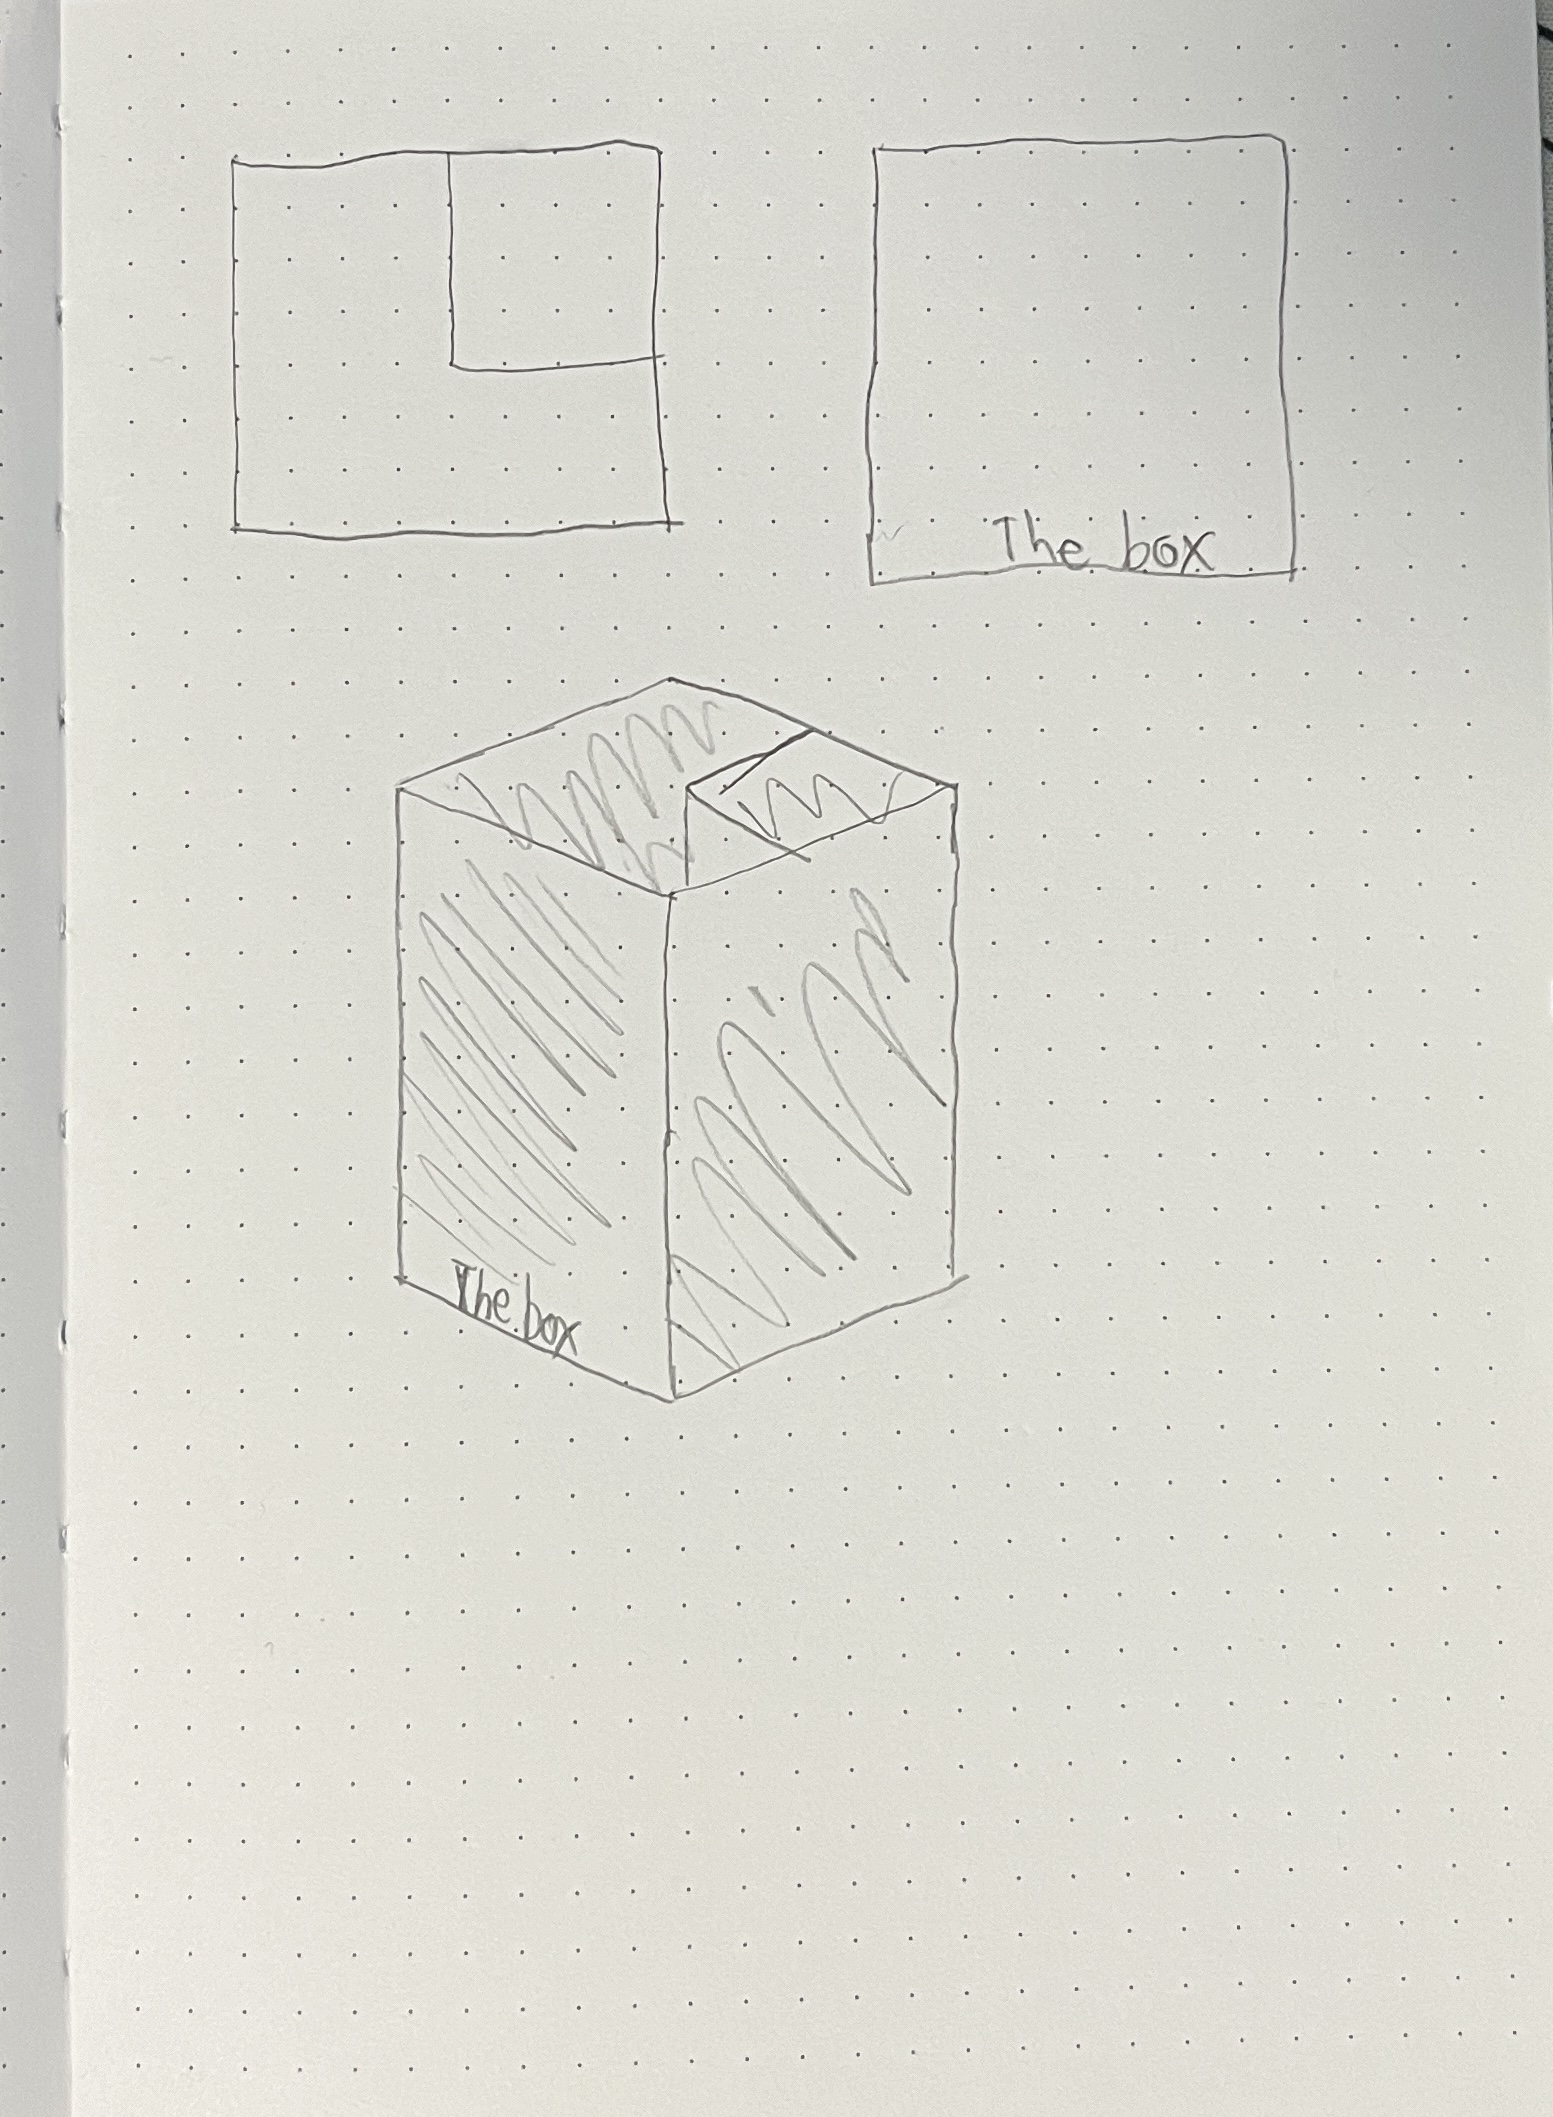 The box
The box